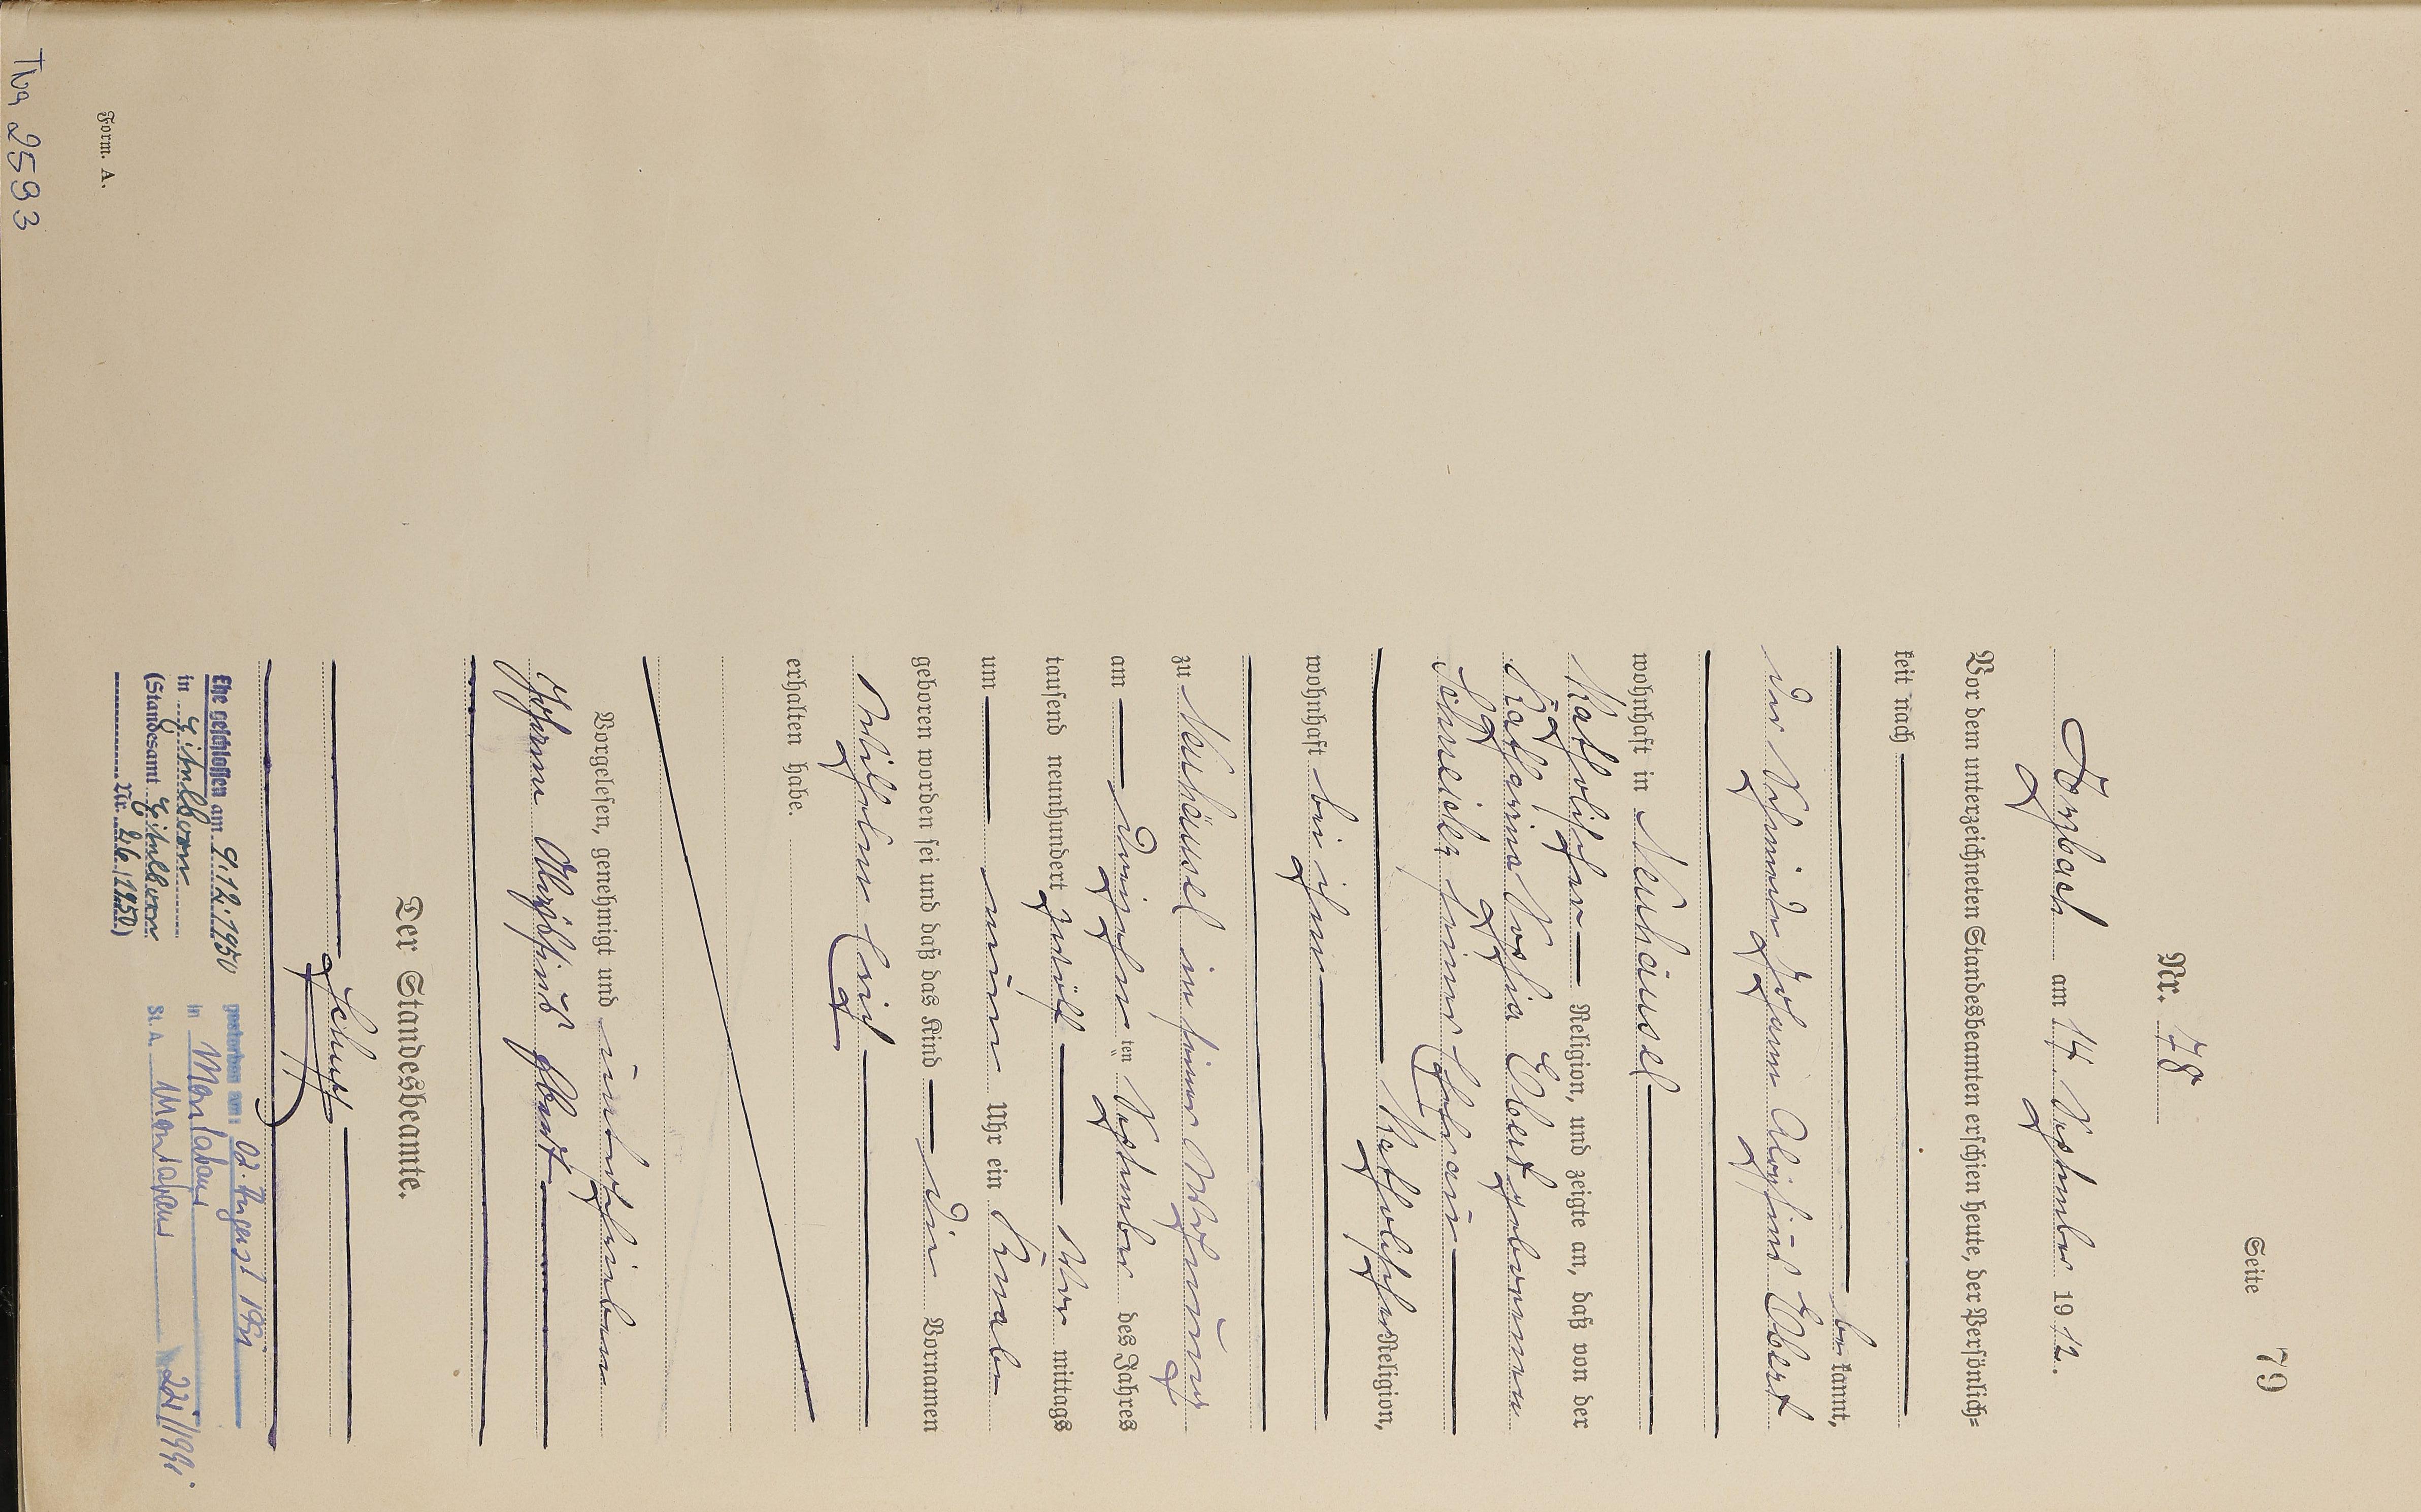 Seite 79
Nr. 78
Arzbach am 14. September 1912.
Vor dem unterzeichneten Standesbeamten erschien heute, der Persönlich=
keit nach
be kannt,
der Schmied Johann Aloysius Ebert
wohnhaft in Neuhäusel
Katholischer Religion, und zeigte an, daß von der
Katharina Sophia Ebert geborenen
Schneider seiner Ehefrau
Katholischer Religion,
wohnhaft bei ihm
zu Neuhäusel in seiner Wohnung
am dreizehn ten September des Jahres
tausend neunhundert zwölf Vor mittags
um neun Uhr ein Knabe
geboren worden sei und daß das Kind die Vornamen
Wilhelm Emil
erhalten habe.
Vorgelesen, genehmigt und unterschrieben
Johann Aloysius Ebert
Der Standesbeamte.
Schupp
Ehe geschlossen am 9.12.1950
in Eitelborn
(Standesamt Eitelborn
Nr. 26/1950)
gestorben am 02. August 1991
in Montabaur
St. A. Montabaur 221/1991
Form. A.
2593